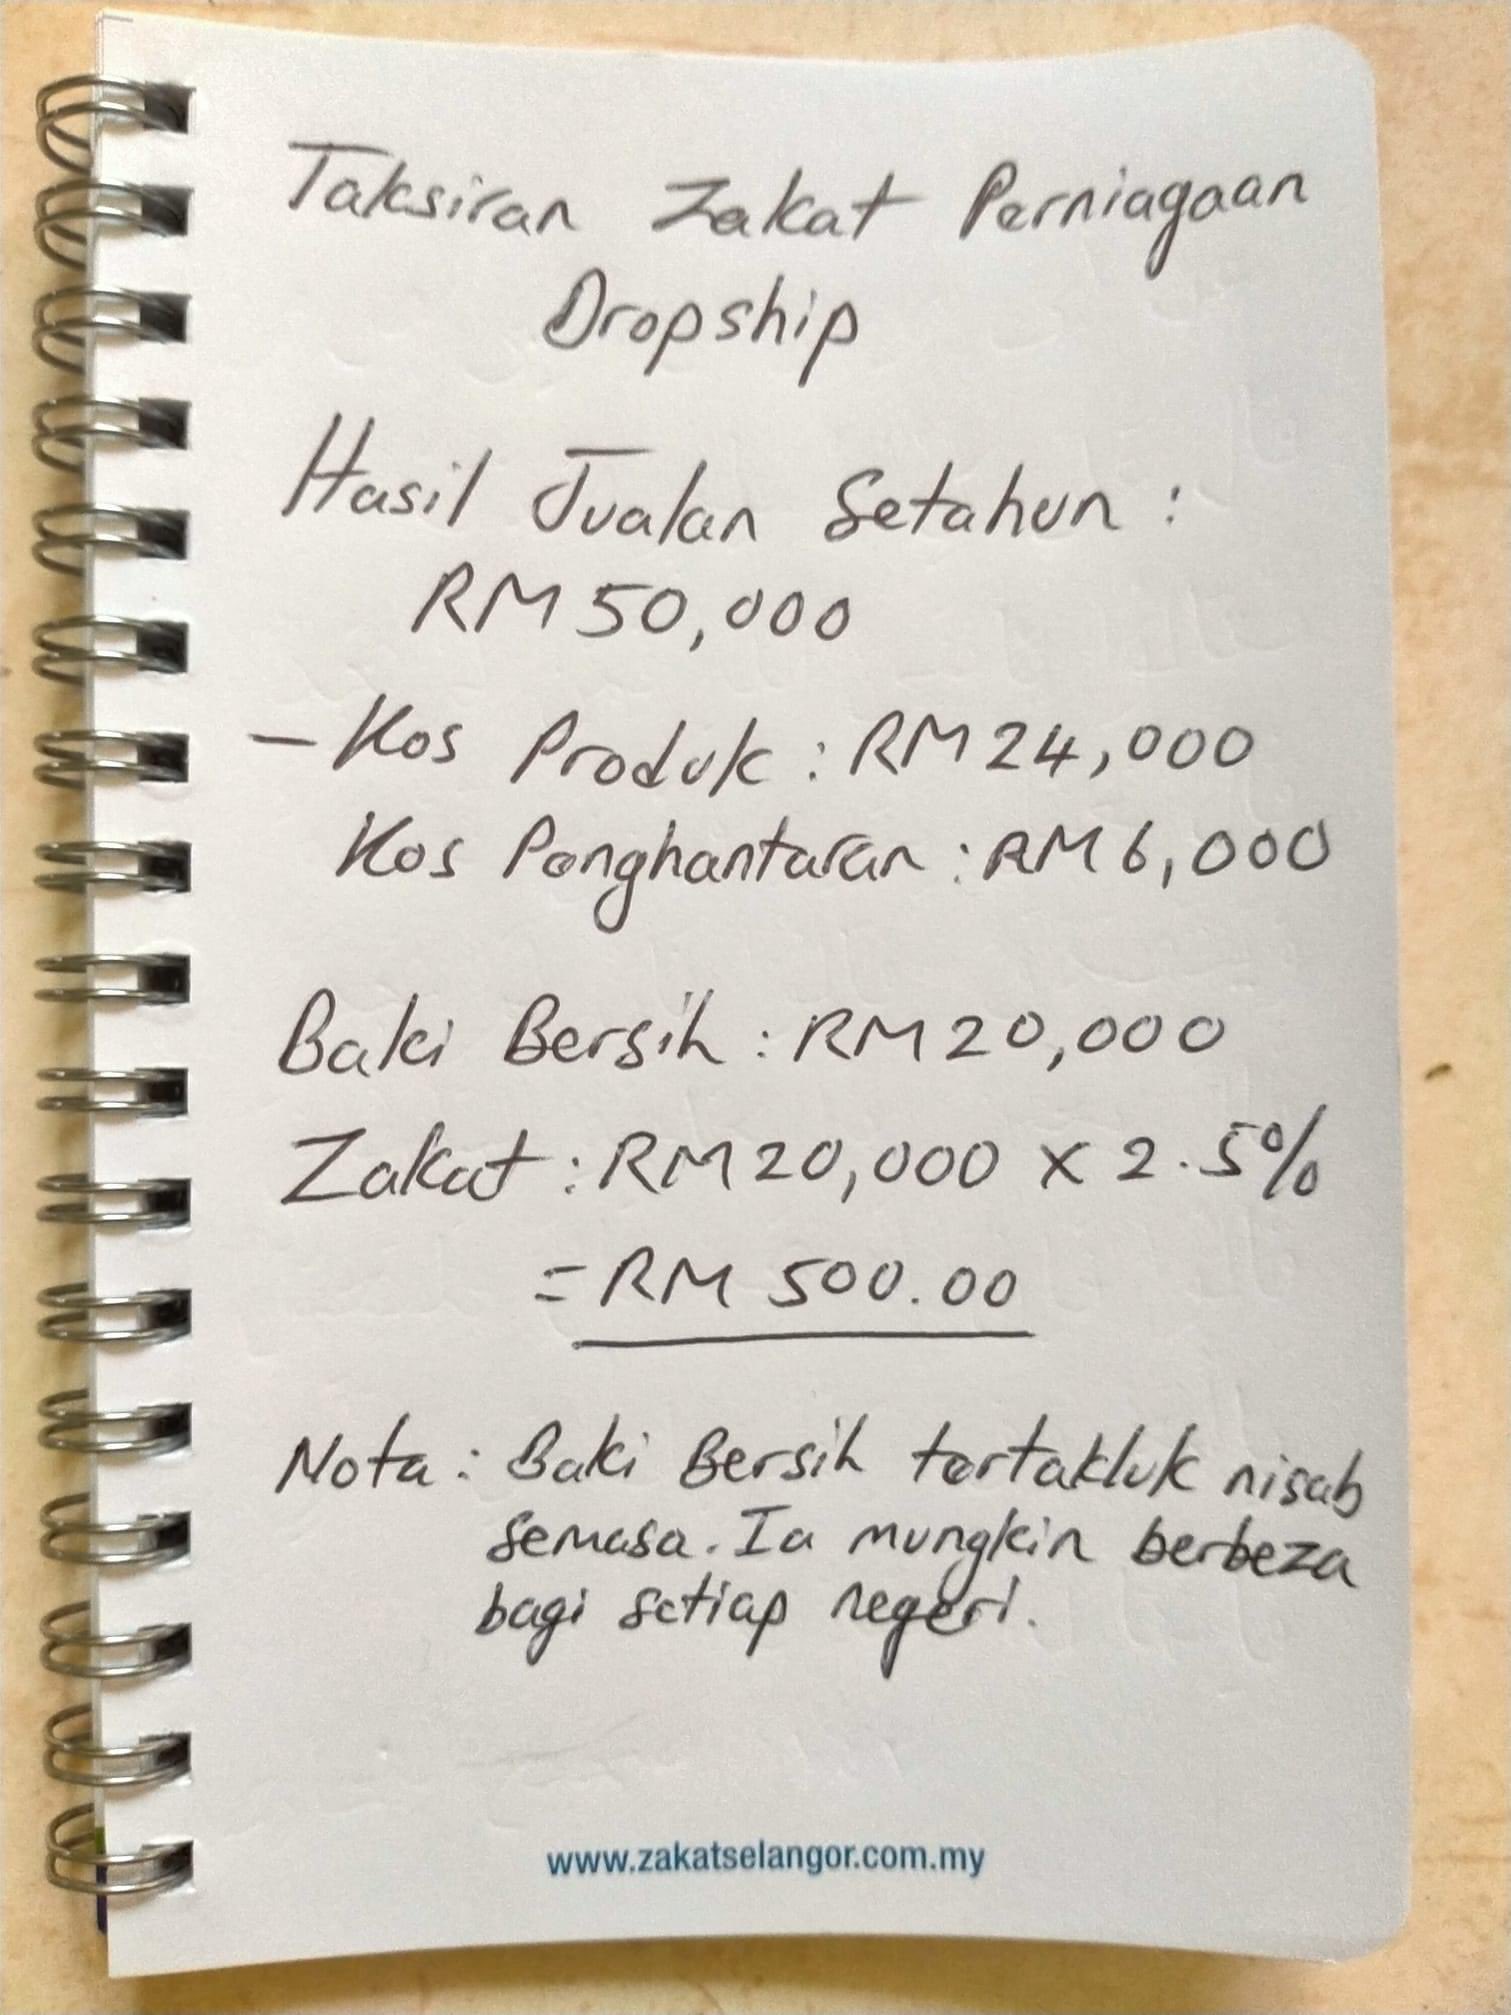 Taksiran Zakat Perniagaan
Dropship
Hasil Jualan Setahun :
RM 50,000
- Kos Produk : RM 24,000
Kos Penghantaran : RM 6,000
Baki Bersih : RM 20,000
Zakat : RM 20,000 x 2.5%
= RM 500.00
Nota : Baki Bersih tertakluk nisab
semasa. Ia mungkin berbeza
bagi setiap negeri.
www.zakatselangor.com.my